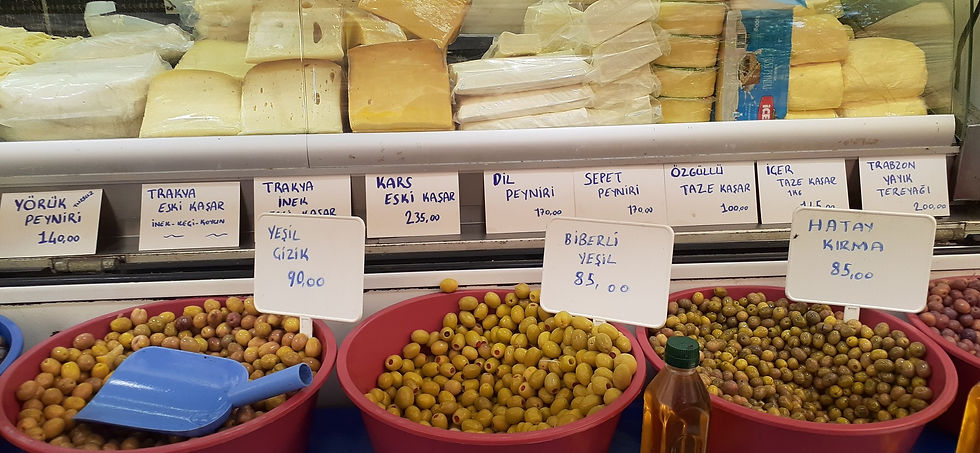 YÖRÜK TUZSUZ
PEYNİRİ
140,00
TRAKYA
ESKİ KAŞAR
İNEK-KEÇİ-KOYUN
TRAKYA
İNEK
ESKİ KAŞAR
KARS
ESKİ KAŞAR
235,00
DİL
PEYNİRİ
170,00
SEPET
PEYNİRİ
170,00
ÖZGÜLLÜ
TAZE KAŞAR
100,00
İÇER
TAZE KAŞAR
1KG
TRABZON
YAYIK
TEREYAĞI
200,00
YEŞİL
ÇİZİK
90,00
BİBERLİ
YEŞİL
85,00
HATAY
KIRMA
85,00